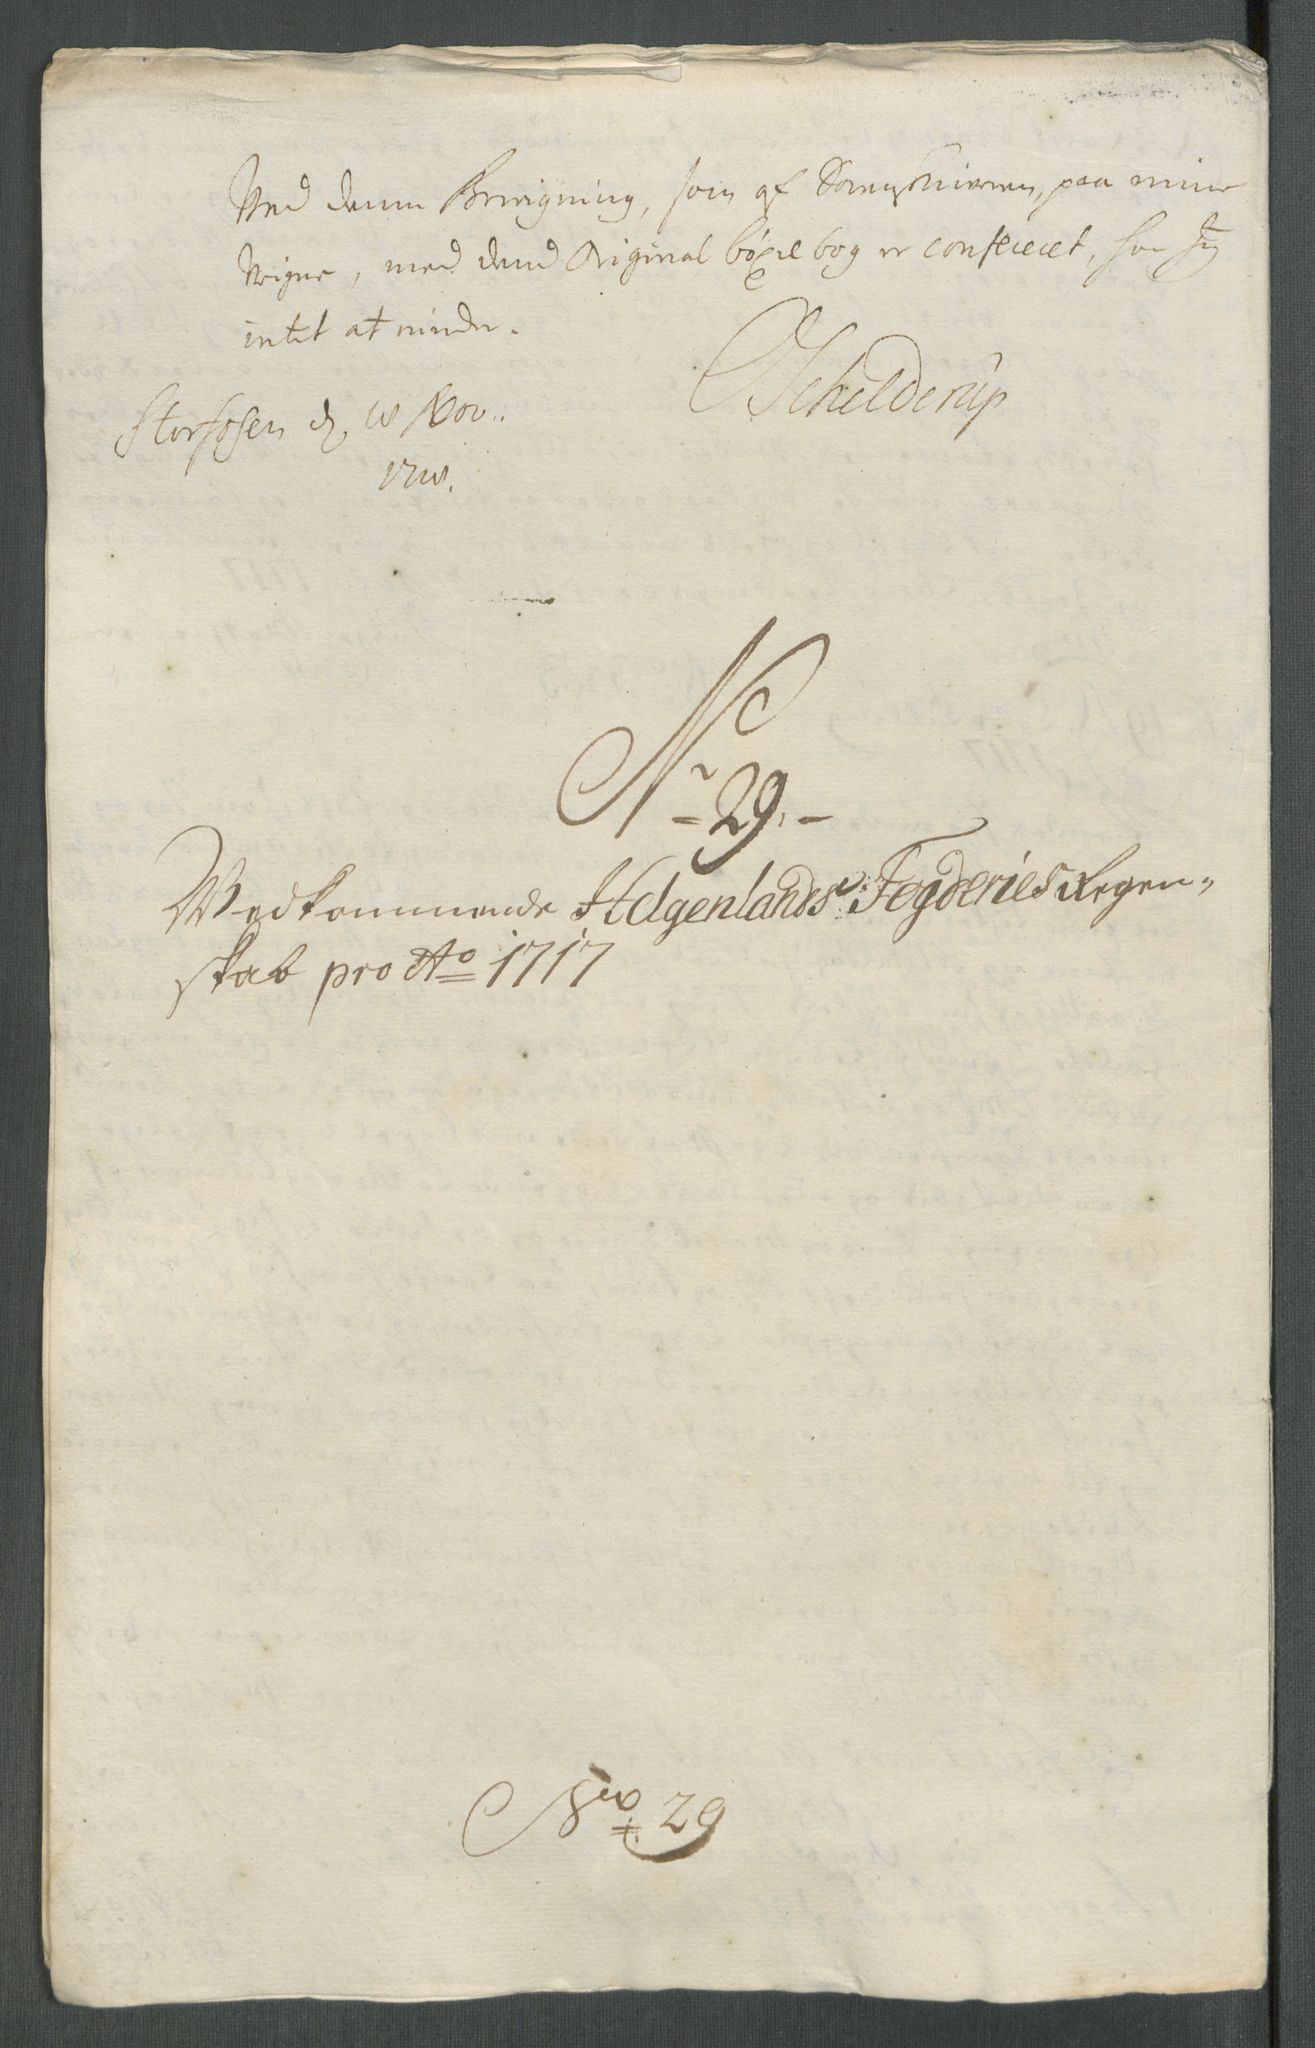 Ved denne Beregning, som af Sorenschriveren, paa mine
Veigne, med dend Original böxelbog er confereret, har Jeg
intet at minde.
Schelderup
Storfosen d. 18 Nov:
1718.
Nr
29.
Wedkommende Helgenlands Fogderies Regen-
skab pro Ao 1717
No 29